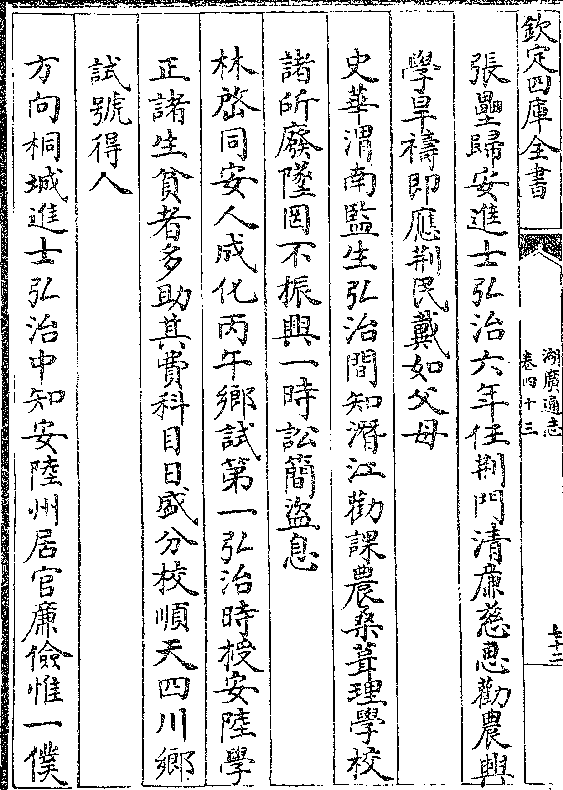 欽定四庫全書
湖廣通志
卷四十三
七十二
張壘歸安進士弘治六年任荆門清亷慈惠勸農興
學旱禱即應荆民戴如父母
史華渭南監生弘治間知潛江勸課農桑葺理學校
諸所廢墜罔不振興一時訟簡盜息
林啓同安人成化丙午鄉試第一弘治時授安陸學
正諸生貧者多助其費科目日盛分校順天四川鄉
試號得人
方向桐城進士弘治中知安陸州居官廉儉惟一僕